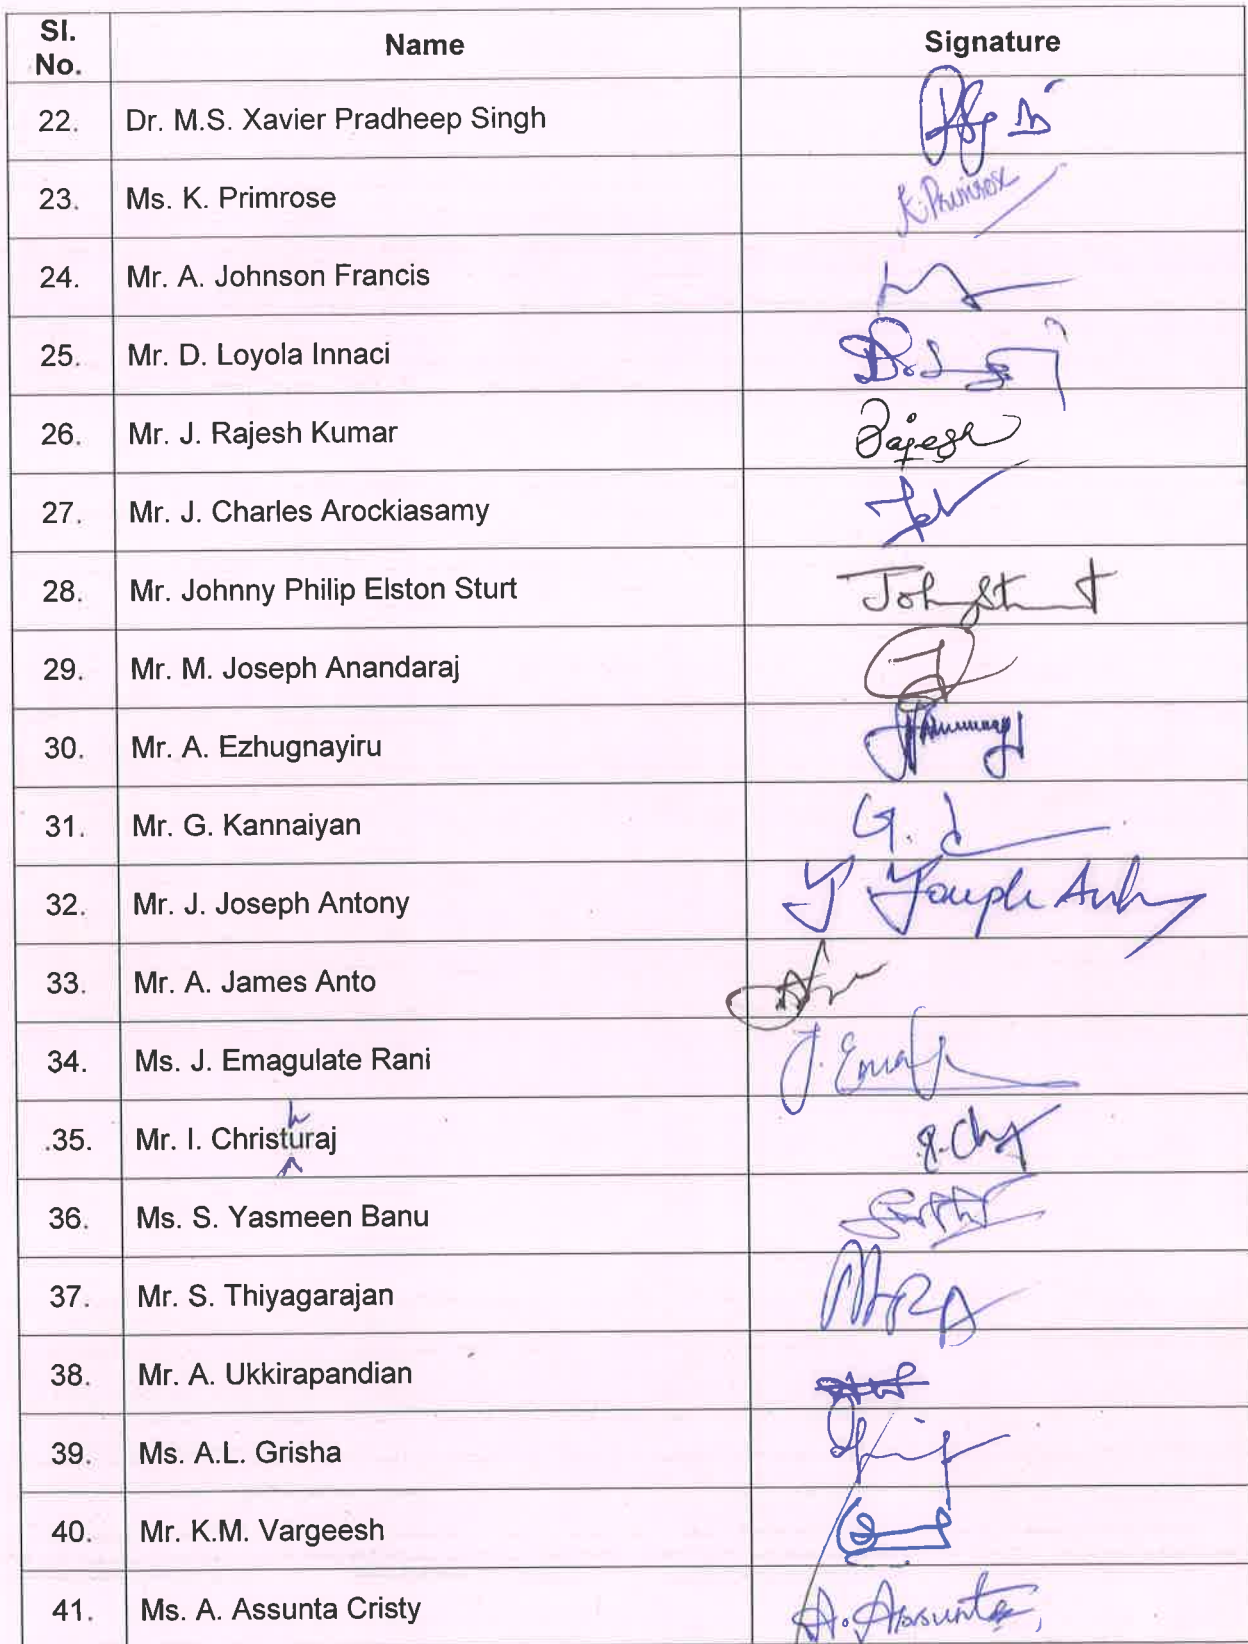 Sl. No. Name Signature
22. Dr. M.S. Xavier Pradheep Singh
23. Ms. K. Primrose K. Primrose
24. Mr. A. Johnson Francis
25. Mr. D. Loyola Innaci
26. Mr. J. Rajesh Kumar Rajesh
27. Mr. J. Charles Arockiasamy
28. Mr. Johnny Philip Elston Sturt
29. Mr. M. Joseph Anandaraj
30. Mr. A. Ezhugnayiru
31. Mr. G. Kannaiyan G.
32. Mr. J. Joseph Antony J Joseph Antony
33. Mr. A. James Anto
34. Ms. J. Emagulate Rani J. Ema
h
35. Mr. I. Christuraj
36. Ms. S. Yasmeen Banu
37. Mr. S. Thiyagarajan
38. Mr. A. Ukkirapandian
39. Ms. A.L. Grisha
40. Mr. K.M. Vargeesh
41. Ms. A. Assunta Cristy A. Assunta